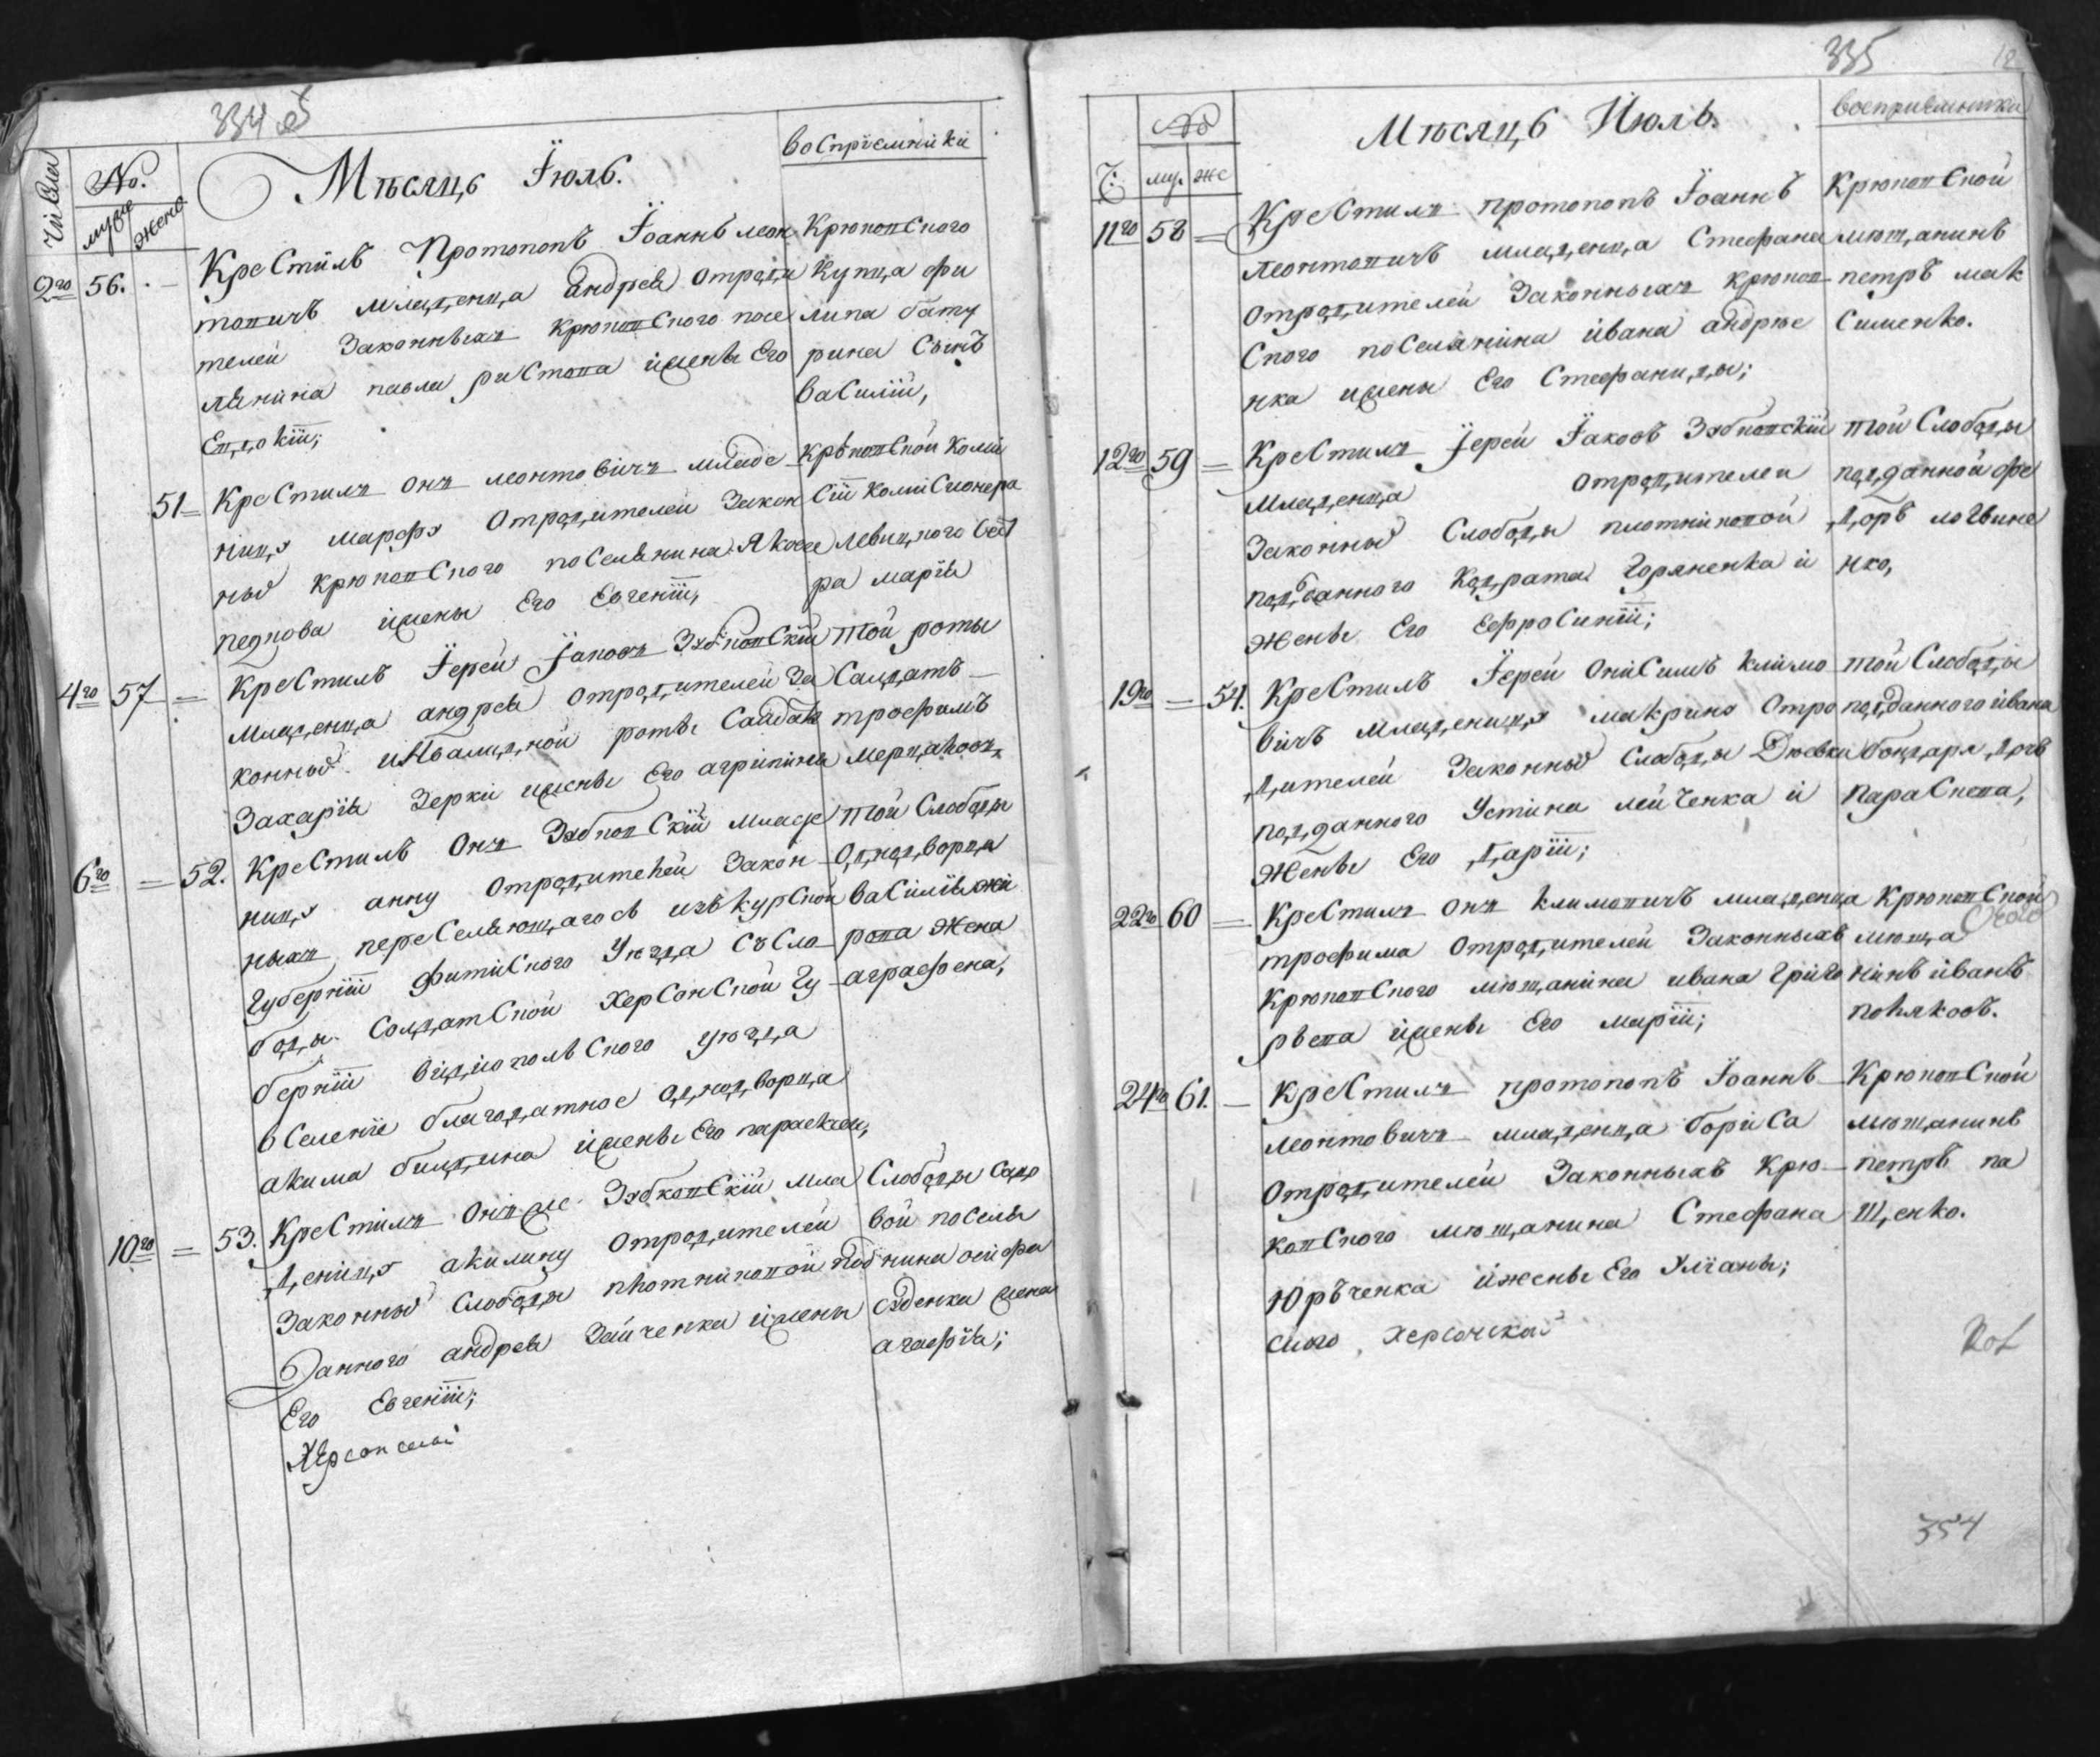 334 об
Числа
№.
муже
жена
Мѣсяцъ Їюль.
воспрїемники
2го 56. Крестилъ Протопопъ Їоаннъ Леон
товичъ младенца андрея отроди
телей законныхъ крюковского посе
лянина павла ристова ижены Его
Евдокїи;
Крюковского
купца фи
липа бату
рина Сынъ
василїй,
51 Крестилъ онъ леонтовичъ младе
ницу марфу отродителей закон
ныхъ крюковского поселянина Якова
педпова ижены Его Евгенїи,
крѣпопской коми
сїи комисионера
левицкого сест
ра марїя
4го 57 Крестилъ Їерей Їаковъ
младенца андрея отродителей за
конныхъ инвалидной роты Салдата
Захарїя Зерки ижены Его агрипины
той роты
Салдатъ
трофимъ
6го 52. Крестилъ Онъ младе
ницу анну отродителей закон
ныхъ переселяющагося изъ курской
губернїи Уезда Съ Сло
боды Солдатской Херсонской гу
бернїи уезда
вселенїе благодатное однодворца
акима ижены Его параскеи,
той Слободы
Однодворца
василїя
жена
аграфена,
10го 53. Крестилъ онже мла
деницу акилину отродителей
законныхъ слободы плотниковой под
данного андрея Зайченка ижены
Его Евгенїи;
Херсонской
Слободы Садо
вой поселя
нина осифа
жена
агафїя;
335
12
№
Ч:
му. же
Мѣсяцъ Июль.
восприемники
11го 58 Крестилъ протопопъ Їоаннъ
Леонтовичъ младенца Стефана
отродителей Законныхъ крюков
ского поселянина ивана андрѣе
нка ижены Его Стефаниды;
Крюковской
мющанинъ
петръ мак
сименко.
12го 59 Крестилъ Їерей Їаковъ
младенца отродителей
Законныхъ Слободы плотниковой
подданного Кодрата Горяненка и
жены Его Ефросинїи;
той Слободы
подданной фе
доръ логвине
нко,
19го 54. Крестилъ Їерей Онисимъ климо
вичъ младеницу макрину отро
дителей Законныхъ Слободы Дѣевки
подданного Устина лейченка и
жены Его дарїи;
той Слободы
подданного ивана
бондаря дочь
Параскева,
22го 60 Крестилъ онъ климовичъ младенца
трофима отродителей Законныхъ
Крюковского мющанина ивана григо
рьева ижены Его марїи;
Крюковской
мюща
нинъ иванъ
поляковъ.
24го 61. Крестилъ протопопъ Їоаннъ
леонтовичъ младенца бориса
отродителей Законныхъ Крю
ковского мющанина Стефана
Юръченка ижены Его Улїаны;
сию, Херсонской
Крюковской
мющанинъ
петръ па
щенко.
354